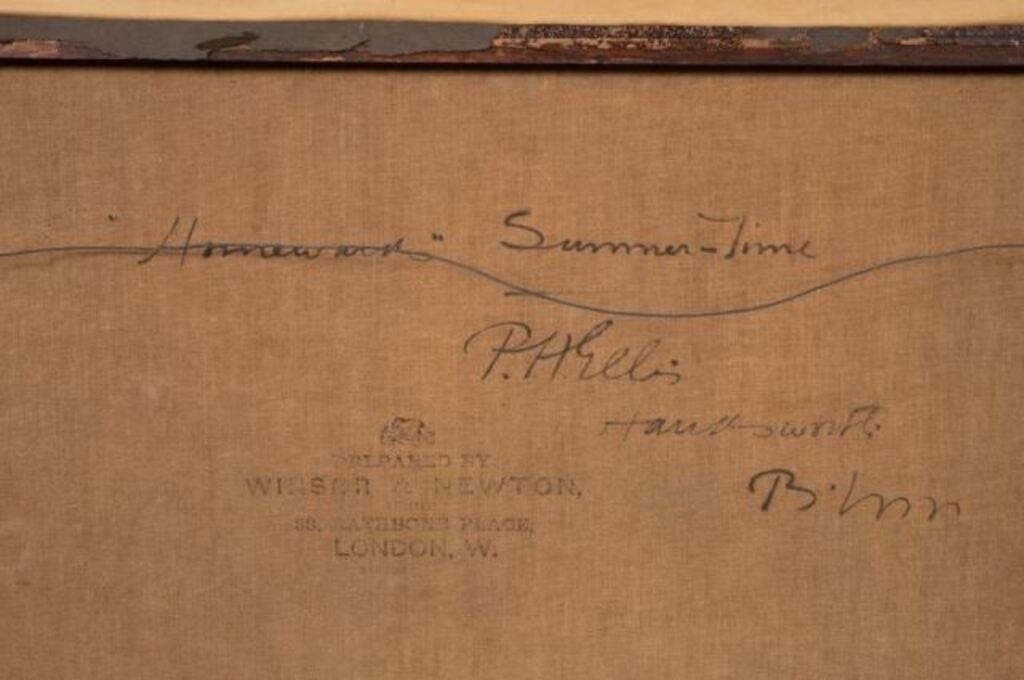 "Homeward" Summer-Time
P.H.Ellis
Handsworth
B'hm
PREPARED BY
WINSOR & NEWTON,
38, RATHBONE PLACE,
LONDON, W.